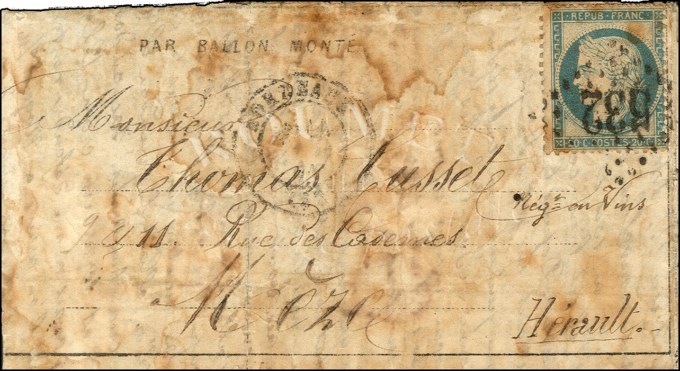 PAR BALLON MONTÉ
REPUB. FRANC.
532
BORDEAUX
Monsieur
Thomas Musset
Négt. en Vins
11 Rue des Casernes
Mèze
Hérault.